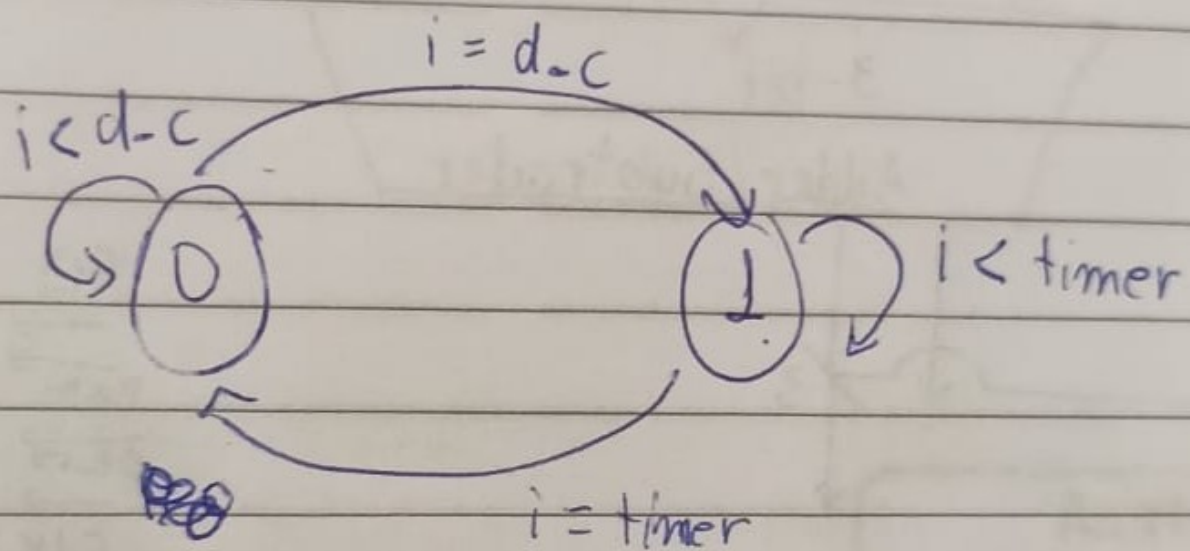 i = d-c
i < d-c
0
1
i < timer
i = timer